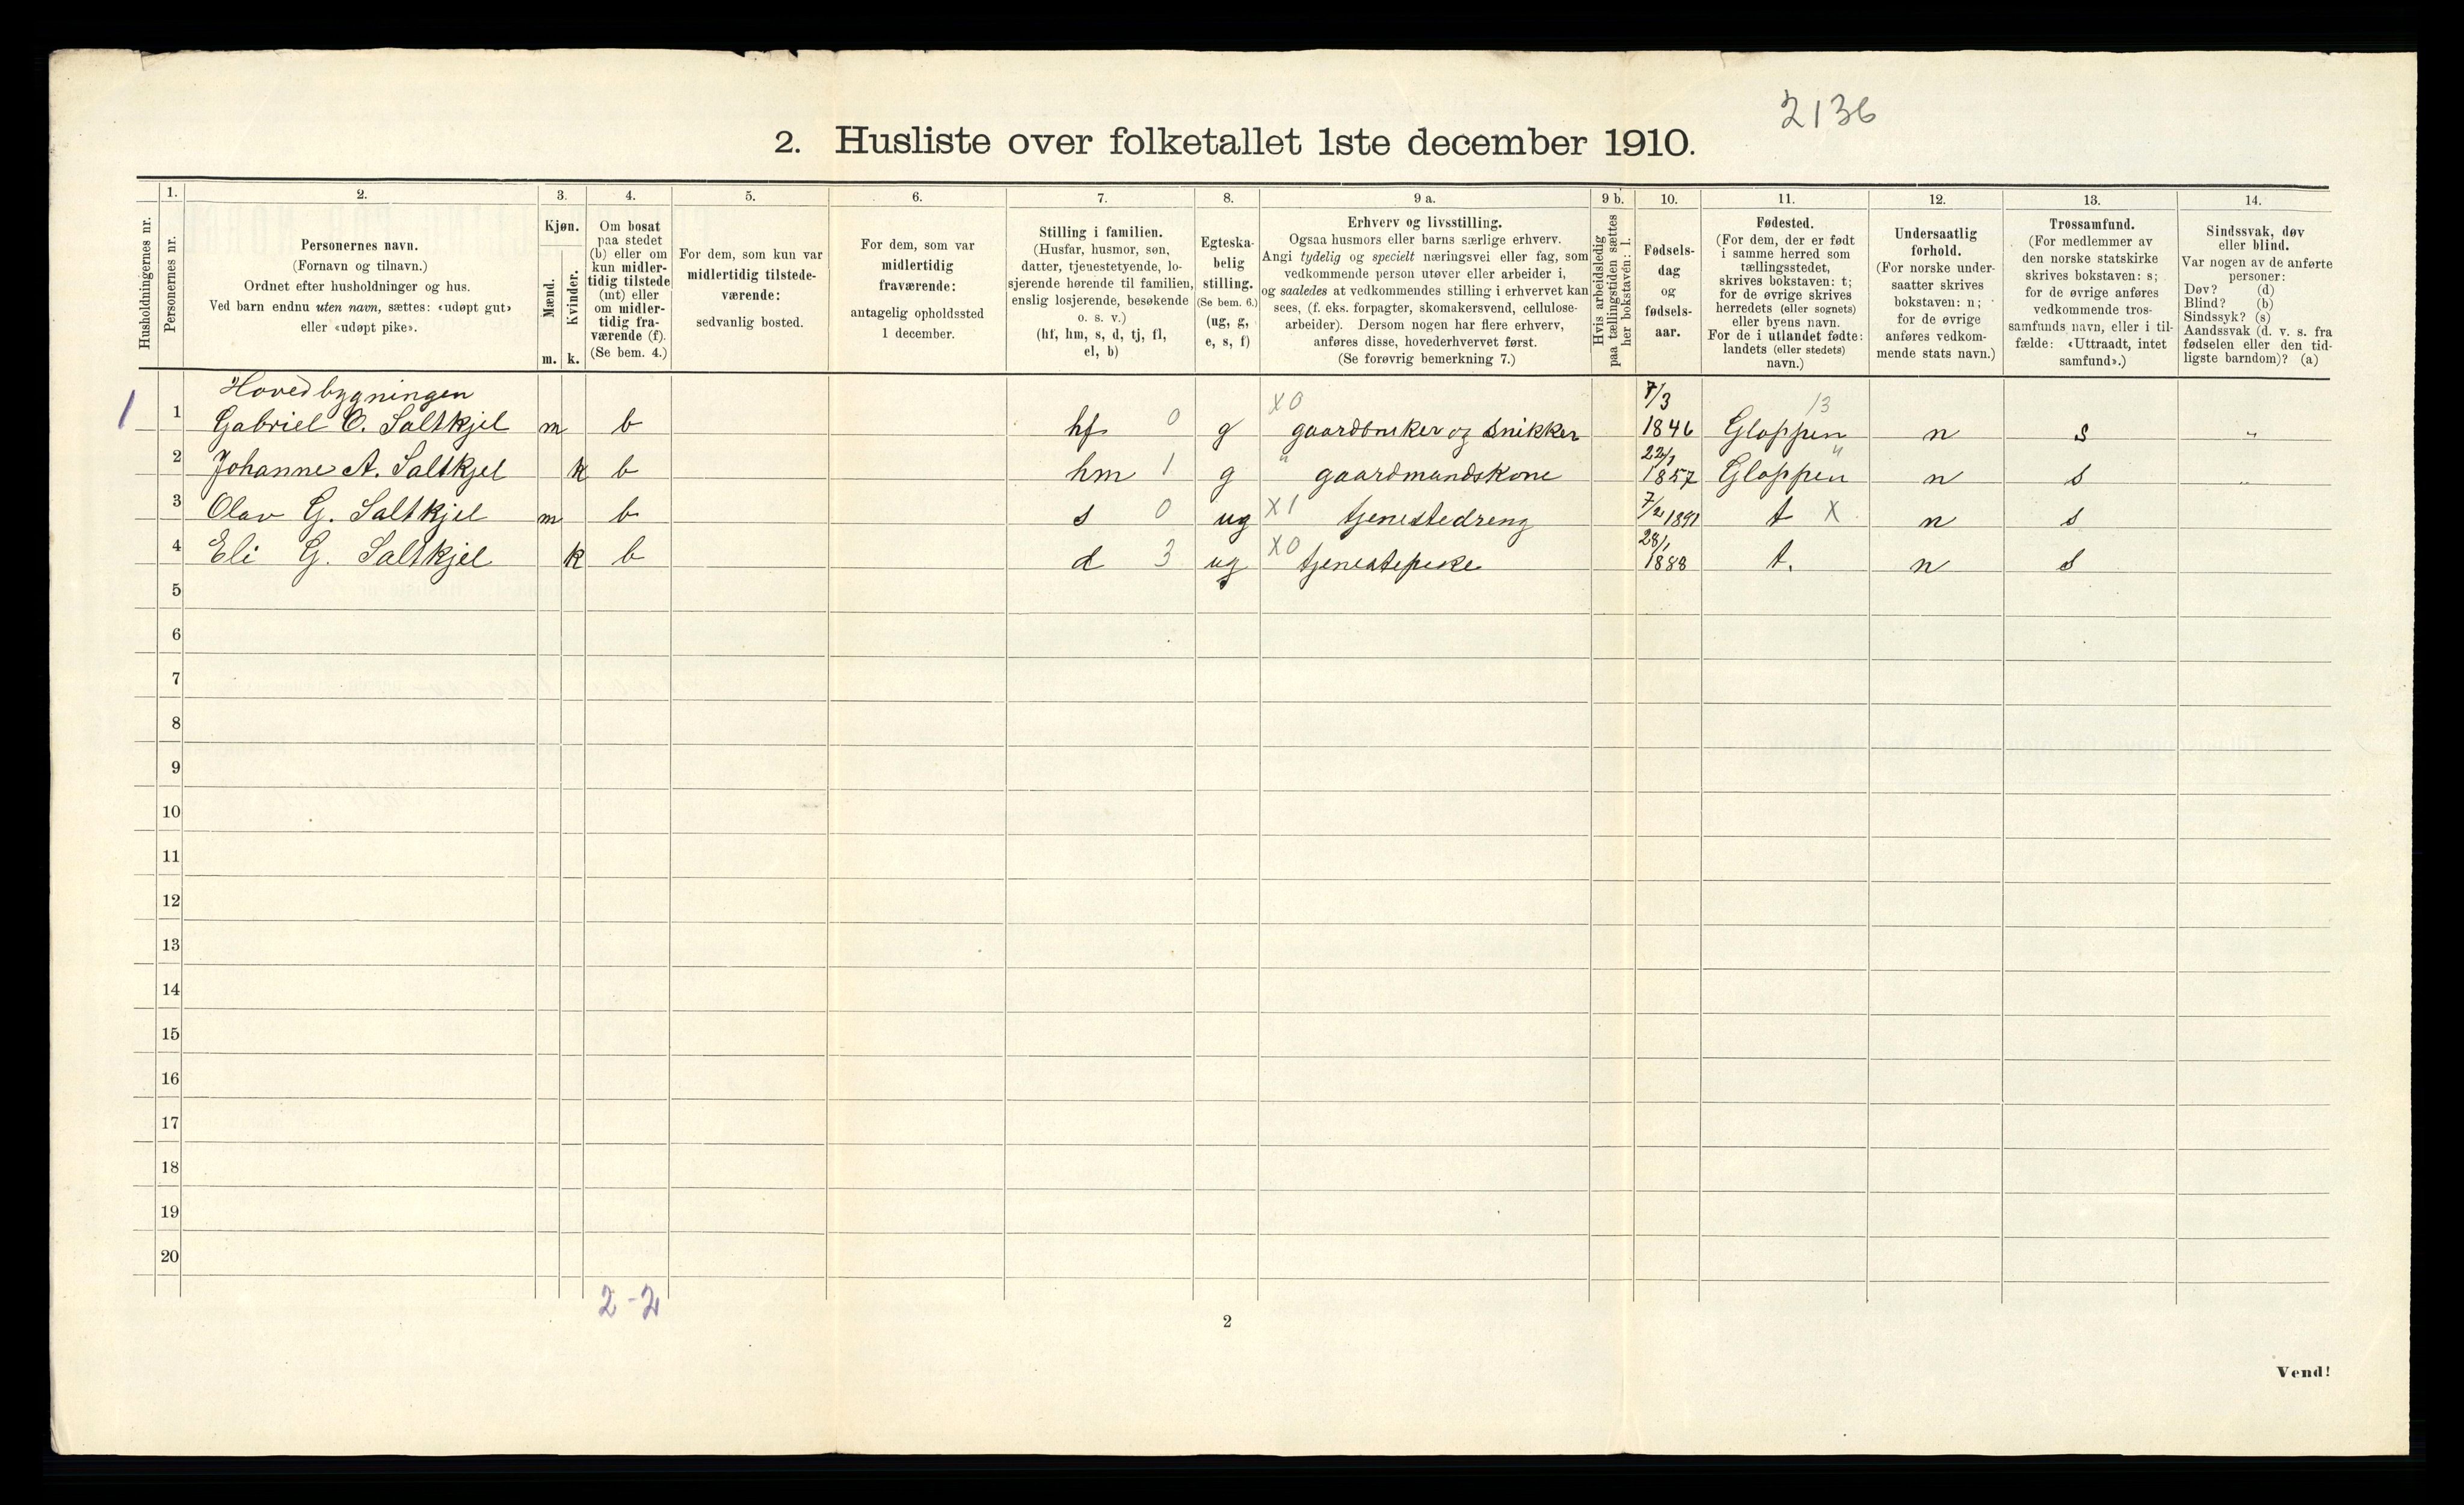 2136
2. Husliste over folketallet 1ste december 1910.
Husholdningernes nr.
1.
Personernes nr.
2.
Personernes navn.
(Fornavn og tilnavn.)
Ordnet efter husholdninger og hus.
Ved barn endnu uten navn, sættes: «udøpt gut»
eller «udøpt pike».
3.
Kjøn.
Mænd.
Kvinder.
m. k.
4.
Om bosat
paa stedet
(b) eller om
kun midler-
tidig tilstede
(mt) eller
om midler-
tidig fra-
værende (f).
(Se bem. 4.)
5.
For dem, som kun var
midlertidig tilstede-
værende:
sedvanlig bosted.
6.
For dem, som var
midlertidig
fraværende:
antagelig opholdssted
1 december.
7.
Stilling i familien.
(Husfar, husmor, søn,
datter, tjenestetyende, lo-
sjerende hørende til familien,
enslig losjerende, besøkende
o. s. v.)
(hf, hm, s, d, tj, fl,
el, b)
8.
Egteska-
belig
stilling.
(Se bem. 6.)
(ug, g,
e, s, f)
9 a.
Erhverv og livsstilling.
Ogsaa husmors eller barns særlige erhverv.
Angi tydelig og specielt næringsvei eller fag, som
vedkommende person utøver eller arbeider i,
og saaledes at vedkommendes stilling i erhvervet kan
sees, (f. eks. forpagter, skomakersvend, cellulose-
arbeider). Dersom nogen har flere erhverv,
anføres disse, hovederhvervet først.
(Se forøvrig bemerkning 7.)
9 b.
Hvis arbeidsledig
paa tællingstiden sættes
her bokstaven: l.
10.
Fødsels-
dag
og
fødsels-
aar.
11.
Fødested.
(For dem, der er født
i samme herred som
tællingsstedet,
skrives bokstaven: t;
for de øvrige skrives
herredets (eller sognets)
eller byens navn.
For de i utlandet fødte:
landets (eller stedets)
navn.)
12.
Undersaatlig
forhold.
(For norske under-
saatter skrives
bokstaven: n;
for de øvrige
anføres vedkom-
mende stats navn.)
13.
Trossamfund.
(For medlemmer av
den norske statskirke
skrives bokstaven: s;
for de øvrige anføres
vedkommende tros-
samfunds navn, eller i til-
fælde: «Uttraadt, intet
samfund».)
14.
Sindssvak, døv
eller blind.
Var nogen av de anførte
personer:
Døv? (d)
Blind? (b)
Sindssyk? (s)
Aandssvak (d. v. s. fra
fødselen eller den tid-
ligste barndom)? (a)
Hovedbygningen
1 1 Gabriel O. Saltkjel m b hf 0 g X0 gaardbruker og Snikker 7/3 1846 Gloppen 13 n s "
2 Johanne A. Saltkjel k b hm 1 g " gaardmandskone 22/1 1857 Gloppen " n s "
3 Olav G. Saltkjel m b s 0 ug X1 tjenestedreng 7/2 1891 t X n s
4 Eli G. Saltkjel k b d 3 ug X0 tjenestepike 28/1 1888 t. n s
5
6
7
8
9
10
11
12
13
14
15
16
17
18
19
20
2-2
2
Vend!